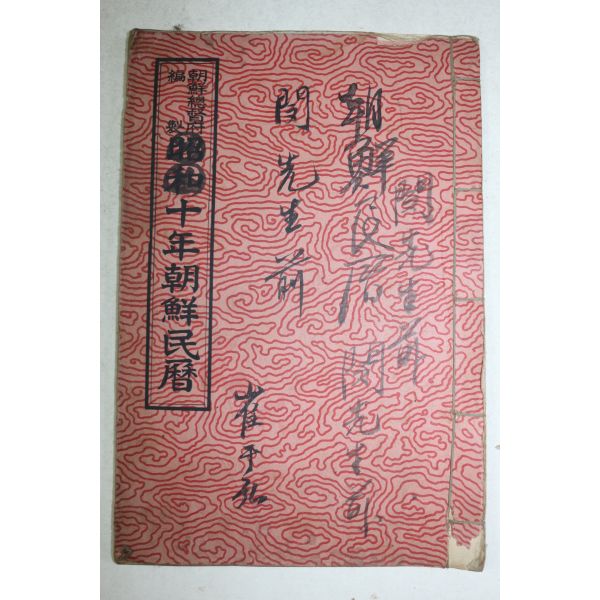 朝鮮總督府
編製
昭和十年朝鮮民曆
朝鮮民曆
閔先生前
閔先生前
閔先生前